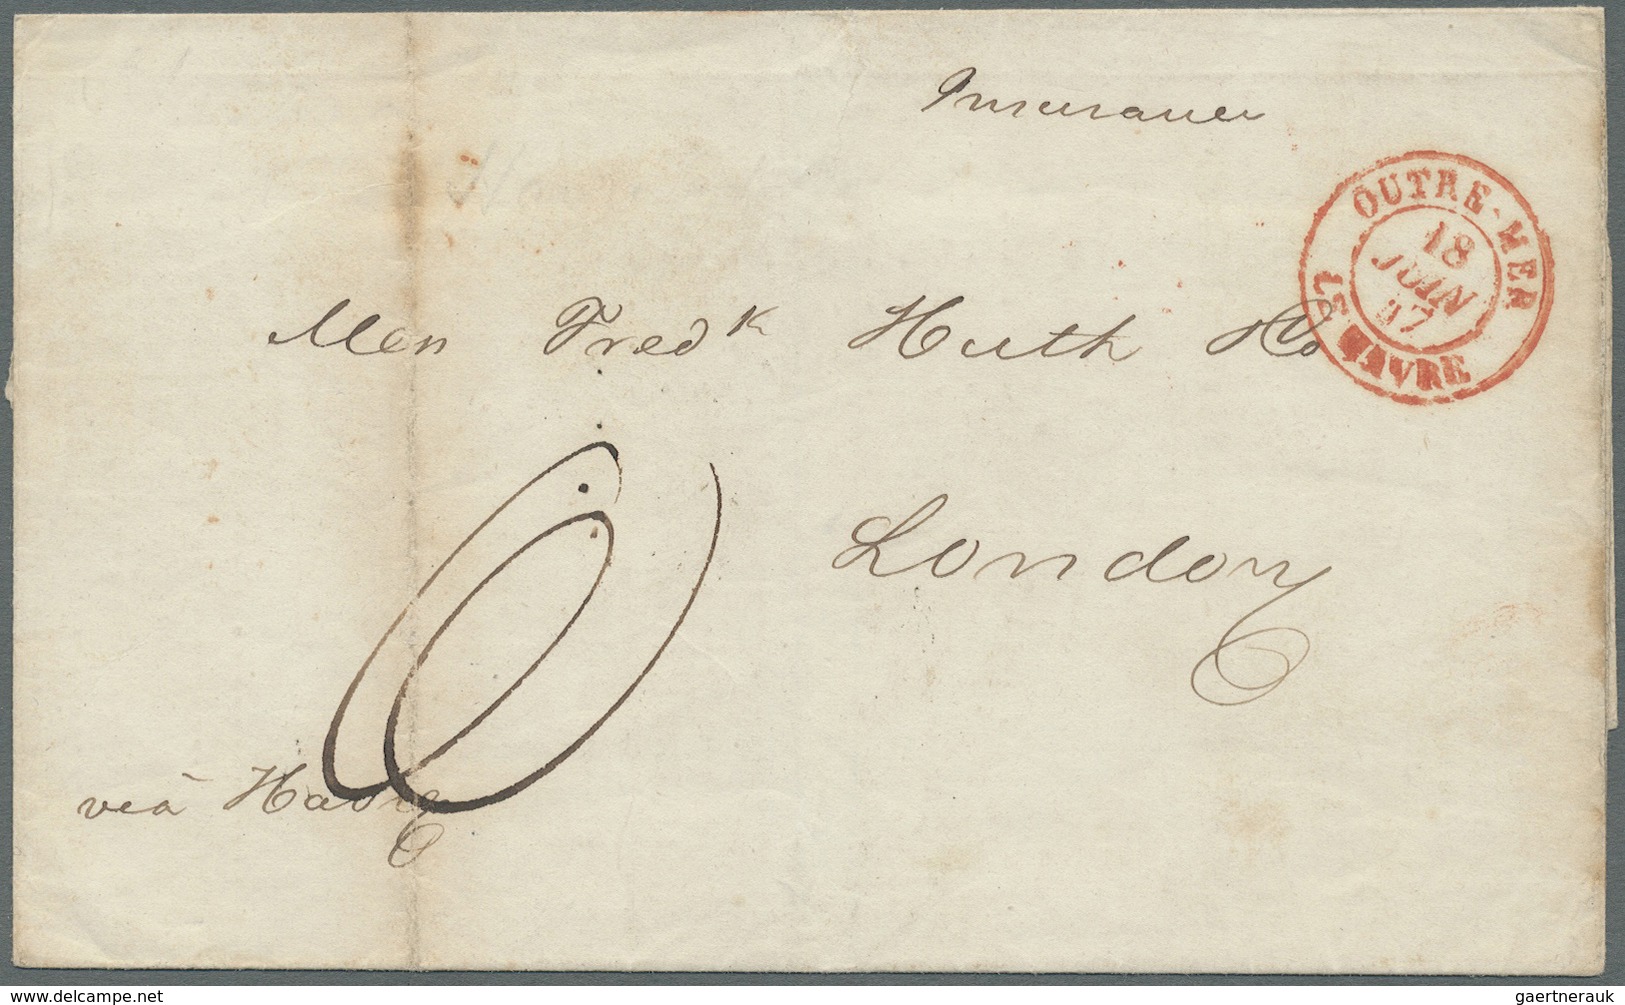 Insurance
OUTRE-MER
18
JUIN
47
LE HAVRE
Mess Fredk Huth & Co
London
viâ Havre
delcampe.net
gaertnerauk